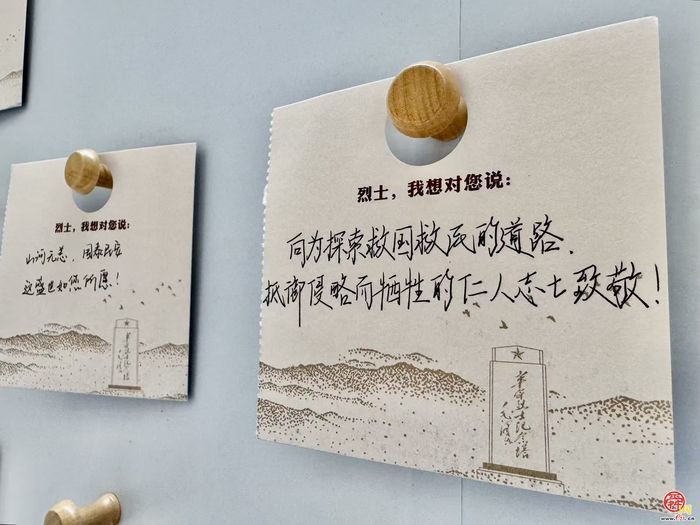 烈士，我想对您说：
山河无恙，国泰民安
这盛世如您所愿！
革命烈士纪念塔
烈士，我想对您说：
向为探索救国救民的道路、
抵御侵略而牺牲的仁人志士致敬！
革命烈士纪念塔